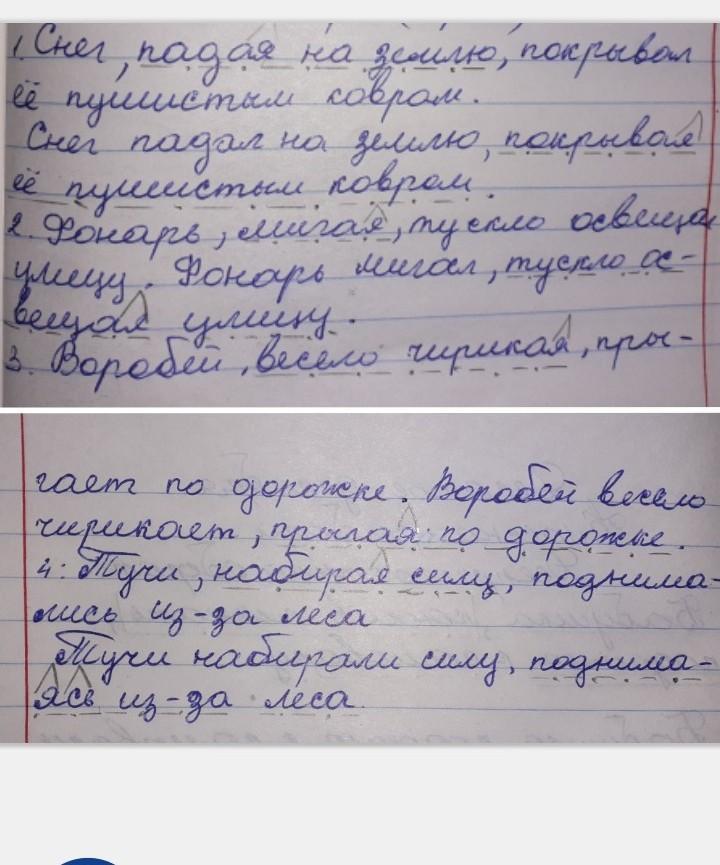 1. Снег, падая на землю, покрывал
её пушистым ковром.
Снег падал на землю, покрывая
её пушистым ковром.
2. Фонарь, мигая, тускло освещал
улицу. Фонарь мигал, тускло ос-
вещая улицу.
3. Воробей, весело чирикая, пры-
гает по дорожке. Воробей весело
чирикает, прыгая по дорожке.
4. Тучи, набирая силу, поднима-
лись из-за леса
Тучи набирали силу, поднима-
ясь из-за леса.